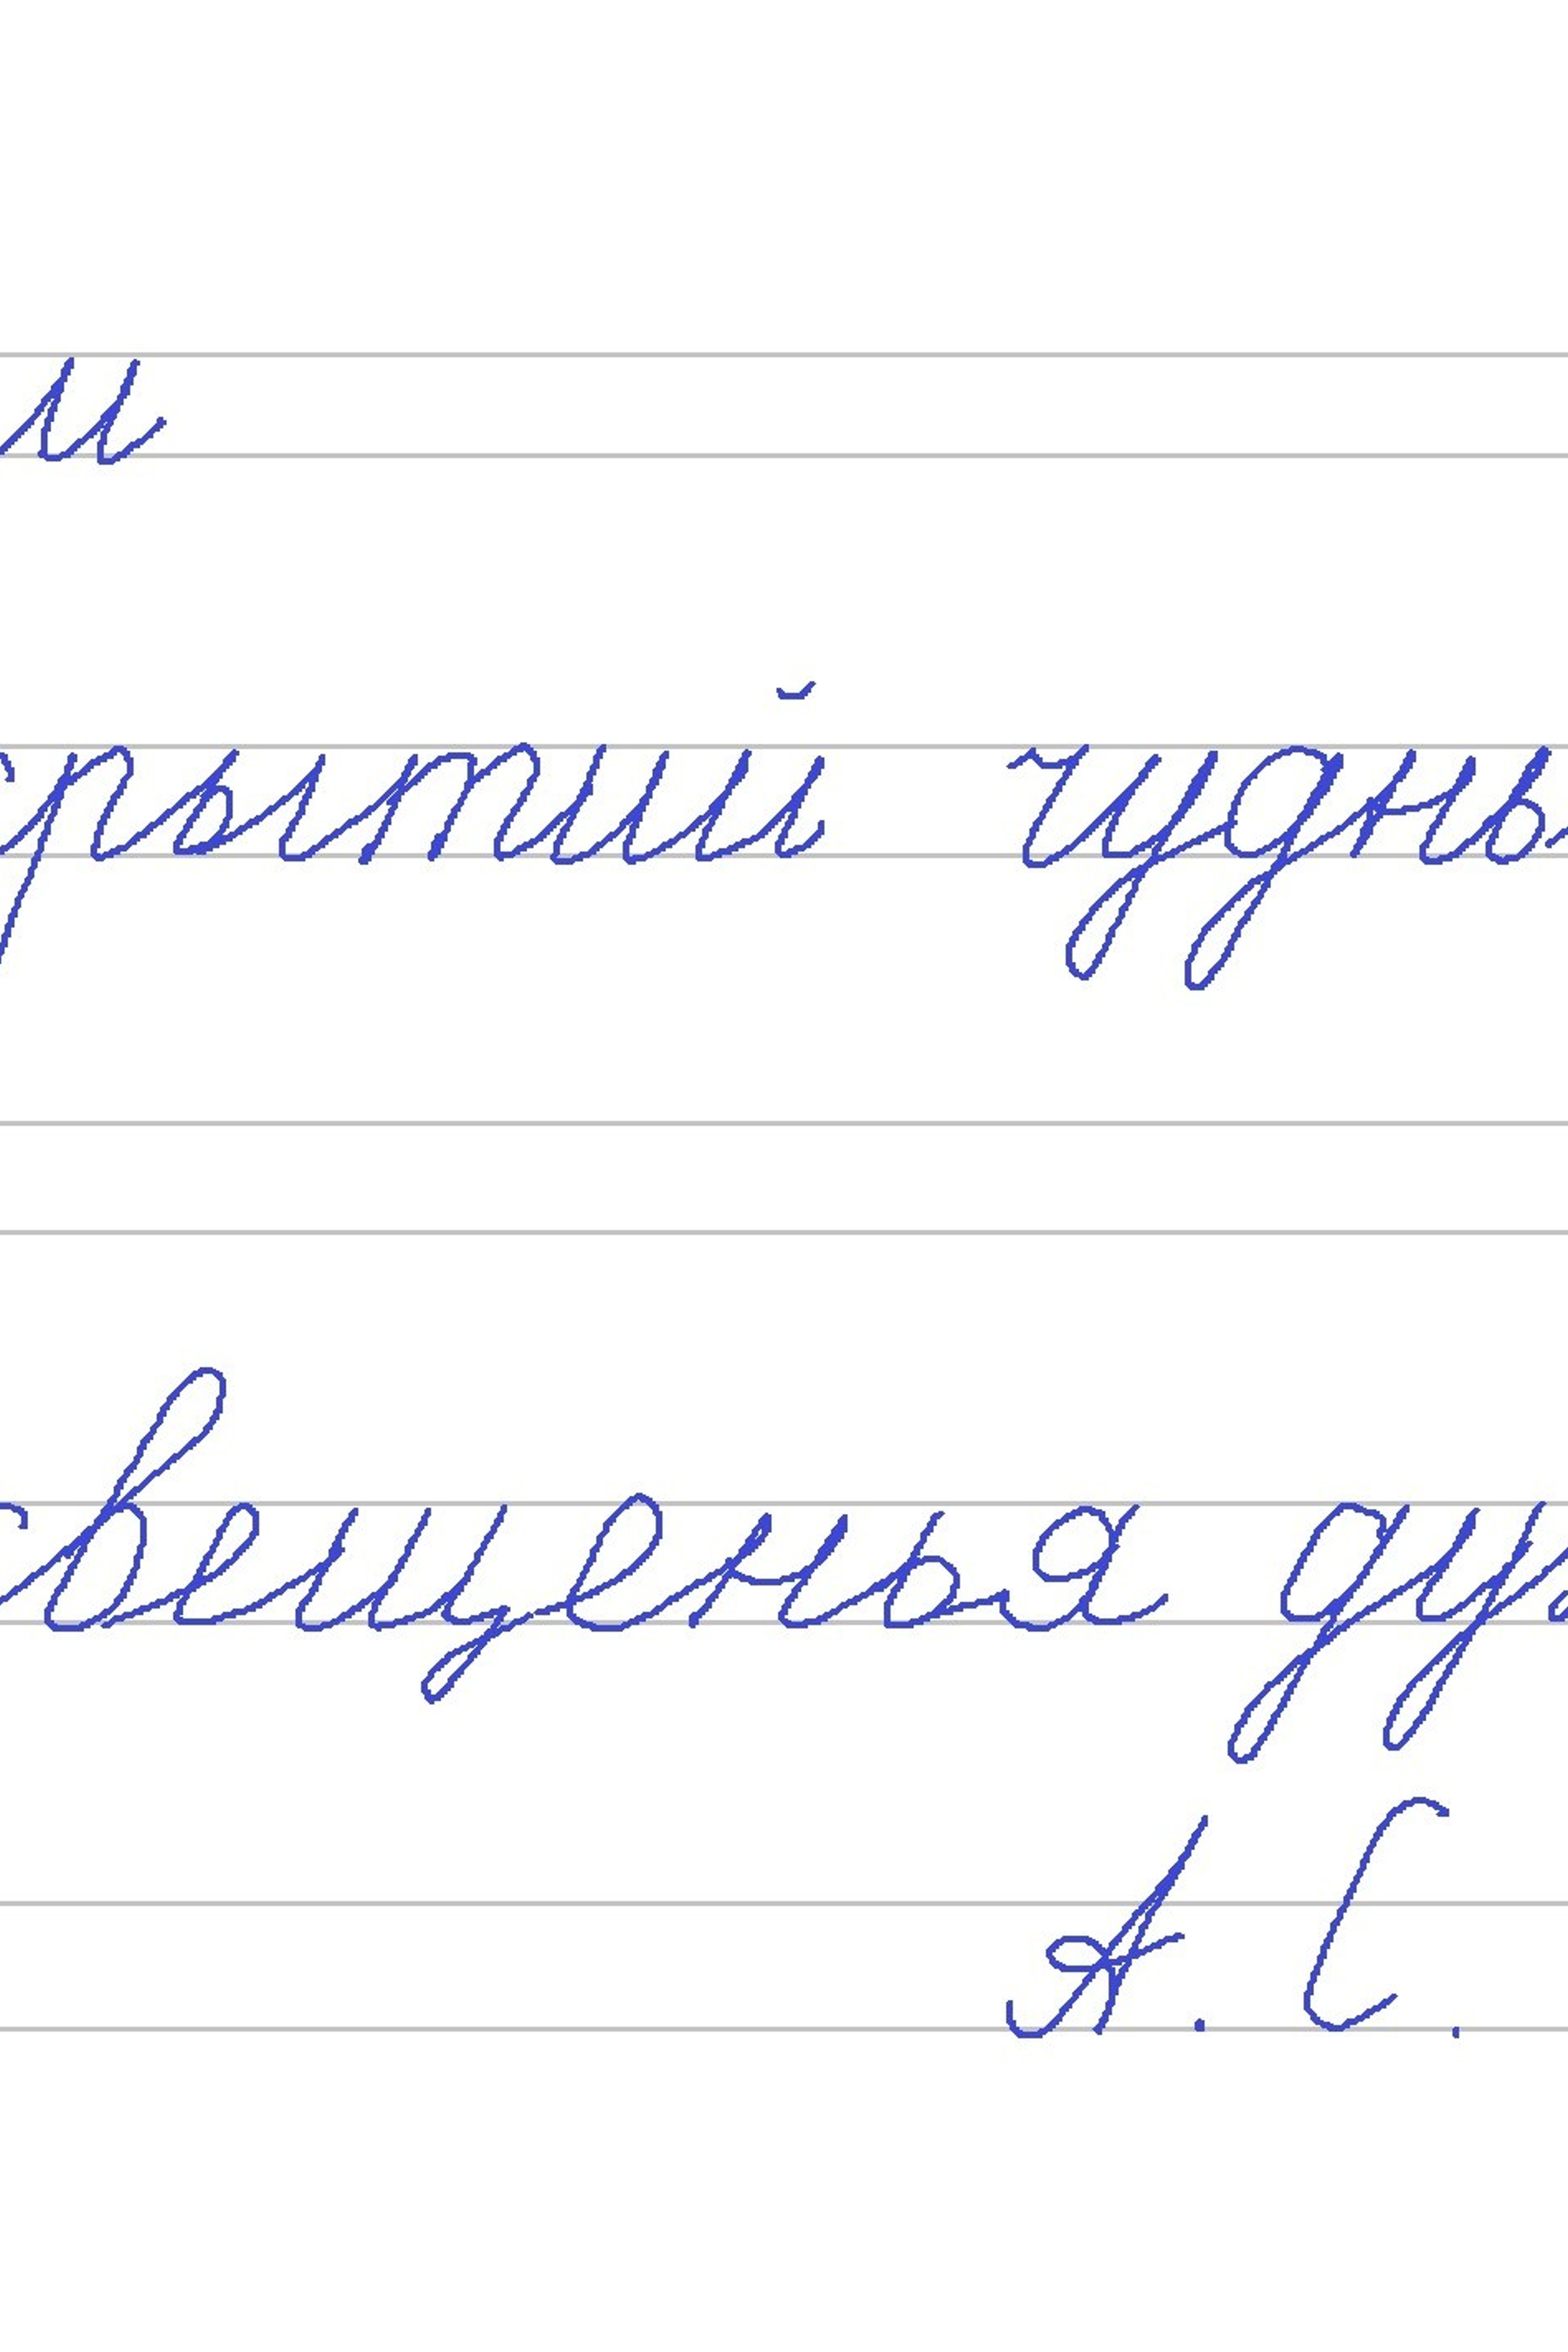 рытий чудны
свещенья ду
А. С.